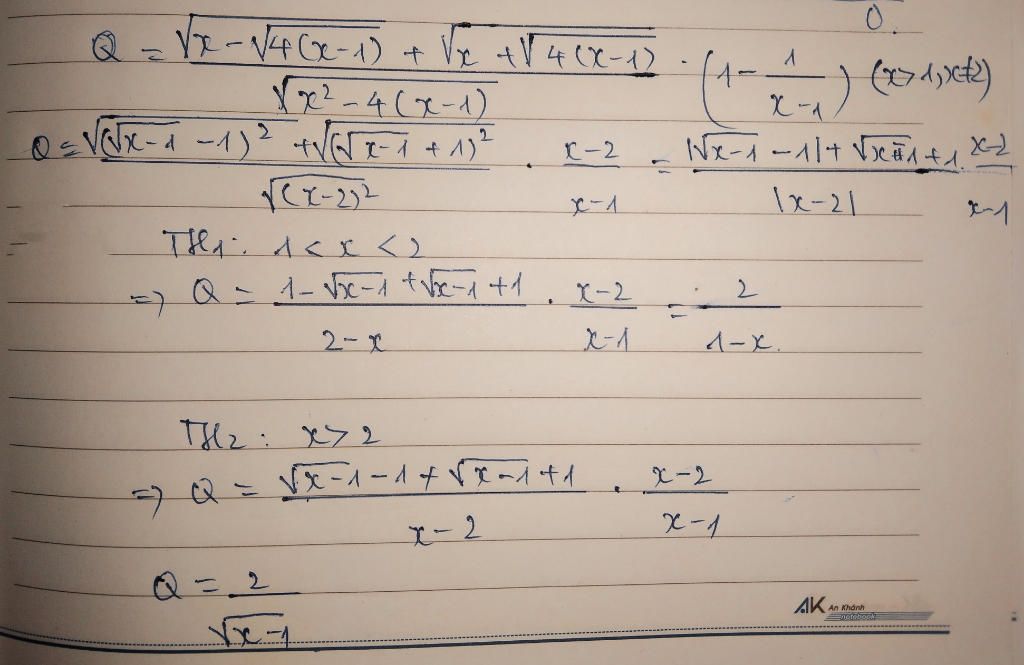 0.
Q = \frac{\sqrt{x-\sqrt{4(x-1)}} + \sqrt{x+\sqrt{4(x-1)}}}{\sqrt{x^2-4(x-1)}} \cdot \left(1-\frac{1}{x-1}\right) (x>1, x≠2)
Q = \frac{\sqrt{(\sqrt{x-1}-1)^2} + \sqrt{(\sqrt{x-1}+1)^2}}{\sqrt{(x-2)^2}} \cdot \frac{x-2}{x-1} = \frac{|\sqrt{x-1}-1| + \sqrt{x-1}+1}{|x-2|} \cdot \frac{x-2}{x-1}
TH1: 1 < x < 2
=> Q = \frac{1-\sqrt{x-1}+\sqrt{x-1}+1}{2-x} \cdot \frac{x-2}{x-1} = \frac{2}{1-x}.
TH2: x > 2
=> Q = \frac{\sqrt{x-1}-1+\sqrt{x-1}+1}{x-2} \cdot \frac{x-2}{x-1}
Q = \frac{2}{\sqrt{x-1}}
AK An Khánh
notebook